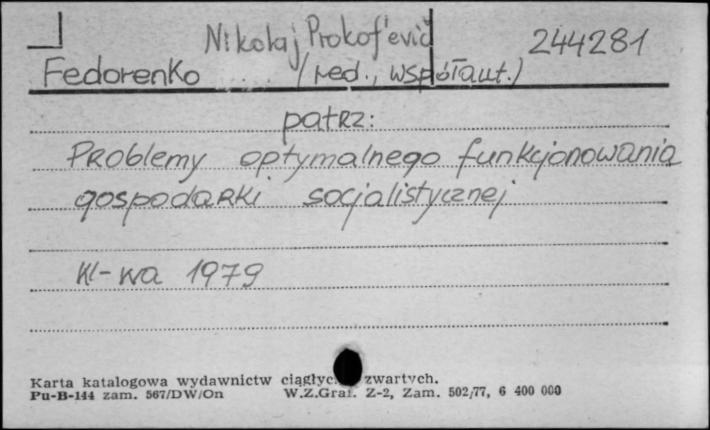 Nikolaj Prokof'evič 244281
Fedorenko (red., współaut.)
patrz:
Problemy optymalnego funkcjonowania
gospodarki socjalistycznej
1979
Karta katalogowa wydawnictw zwartych.
Pu-B-144 zam. 567/DW/On W.Z.Graf. Z-2, Zam. 502/77, 6 400 000